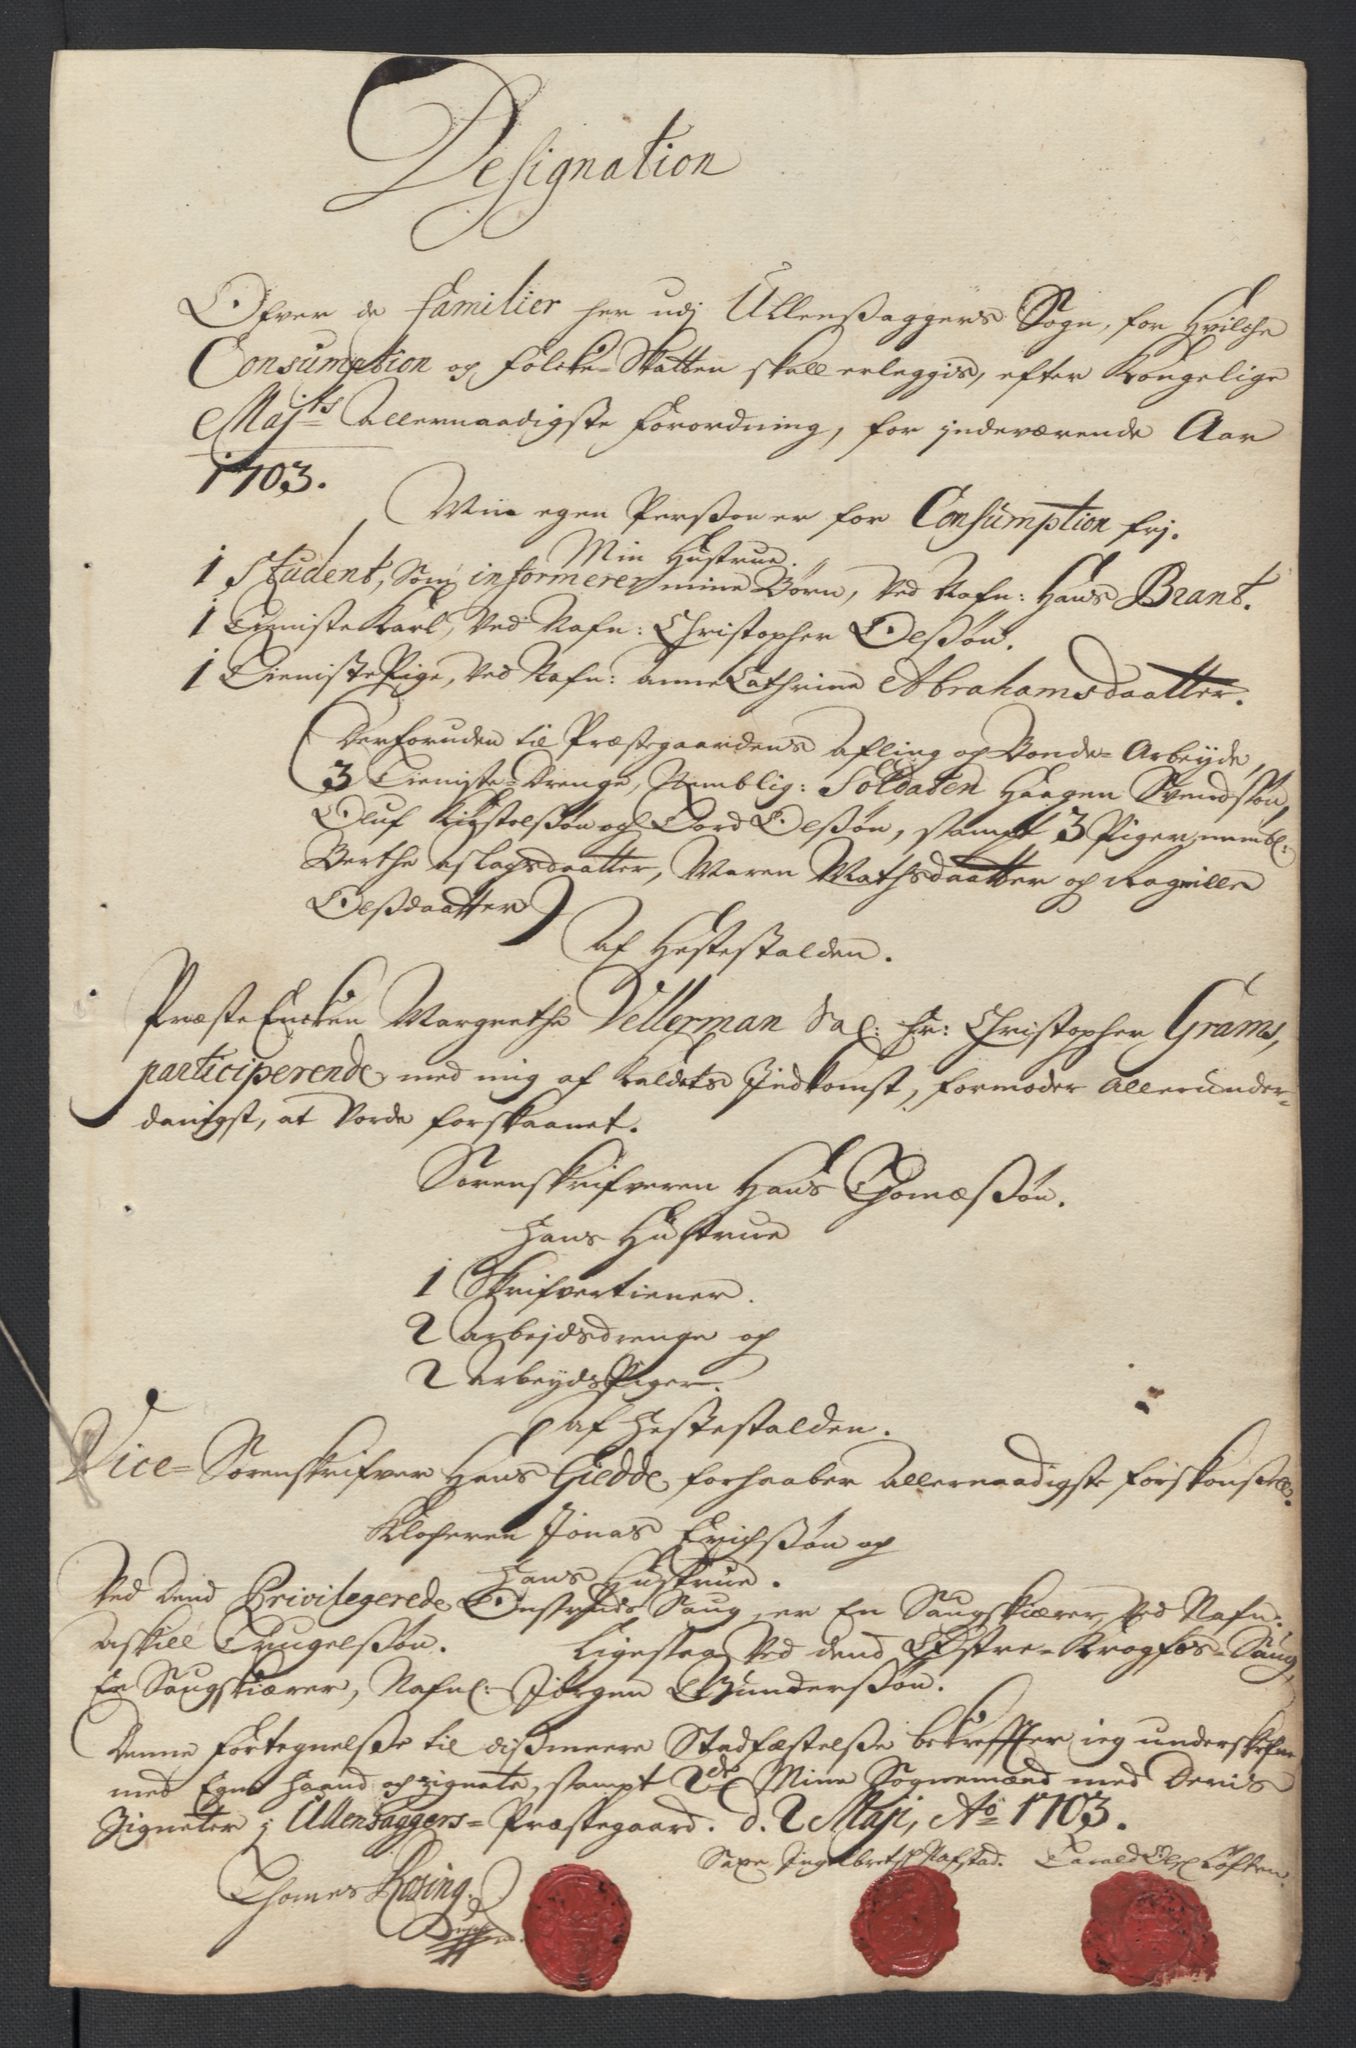 Designation
Ofver de Familier her udj Ullensaggers Sogn, for hvilche
Consumption og Folcke-Skatten skall erleggis, efter Kongelige
Majts Allernaadigste Forordning, for indeværende Aar
1703.
Min egen Persson er for Consumption frj.
Min Hustrue.
1 Student, som informerer mine Børn, ved Nafn: Hans Brant.
1 Tieniste Karl, ved Nafn: Christopher Olssøn.
1 Tieniste Pige, ved Nafn: Anne Cathrine Abrahamsdaatter.
(Derforuden til Præstegaardens Afling og Bonde-Arbeyde,
3 Tieniste-Drenge, Nemblig: Soldaten Haagen Svendssøn,
Oluf Kiystelssøn og Tord Olssøn, sampt 3 Piger, nembl:
Berthe Aslagsdaatter, Maren Mathsdaatter og Ragnille
Olssdaatter)
Af Hestestalden.
Præste Encken Margrethe Vellerman Sal: Hr: Christopher Grams,
participerende med mig af Kaldets Indkomst, formoder allerunder-
danigst, at vorde forskaanet.
Sorenskrifveren Hans Thomæssøn.
Hans Hustrue
1 Skrifvertiener.
2 Arbejdsdrenge og
2 Arbeyds Piger.
af Hestestalden.
Vice-Sorenskrifver Hans Giedde forhaaber allernaadigste forskonsell.
Klocheren Jonas Erichssøn og
Hans Hustrue.
Ved dend Privilegerede Saug, er En Saugskiærer, ved Nafn:
Askill Trugelssøn. Ligesaa ved dend Østre-Krogfos-Saug,
En Saugskiærer, Nafnl: Jørgen Gunderssøn.
Denne Fortegnelsse til dissmeere Stadfæstelsse bekreffter ieg underskrefne
med Egen Haand og Zignete, sampt 2de Mine Sognemænd med Deris
Zigneter i Ullensaggers-Præstegaard. d. 2 Maji, Ao 1703.
Thomes Rosing.
Saxe Ingelbretss Nafstad. Taral Olss Løften.